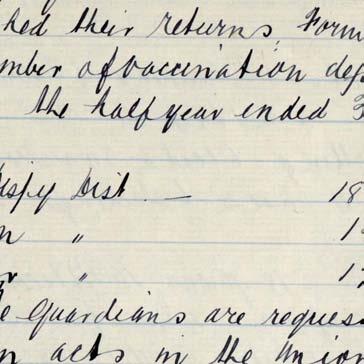 hed their returns Form
mber of vaccination def
the half year ended 3
Dist. — 18
n " 1
r " 1
e Guardians are reques
n acts in the Union